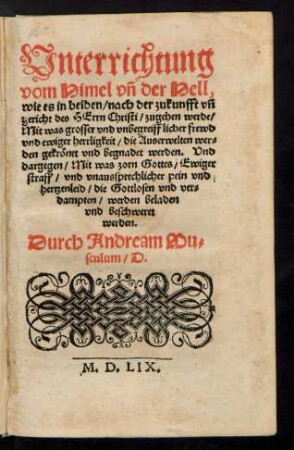 Unterrichtung
vom Himel vn̄ der Hell,
wie es in beiden/nach der zukunfft vn̄
gericht des HErrn Christi/zugehen werde/
Mit was grosser vnd vnbegreifflicher frewd
vnd ewiger herrligkeit/die Auserwelten wer-
den gekrönet vnd begnadet werden. Vnd
dargegen/Mit was zorn Gottes/Ewiger
straff/ vnd vnaussprechlicher pein vnd
hertzenleid/die Gottlosen vnd ver-
dampten/werden beladen
vnd beschweret
werden.
Durch Andream Mu-
sculum/D.
M. D. LIX.